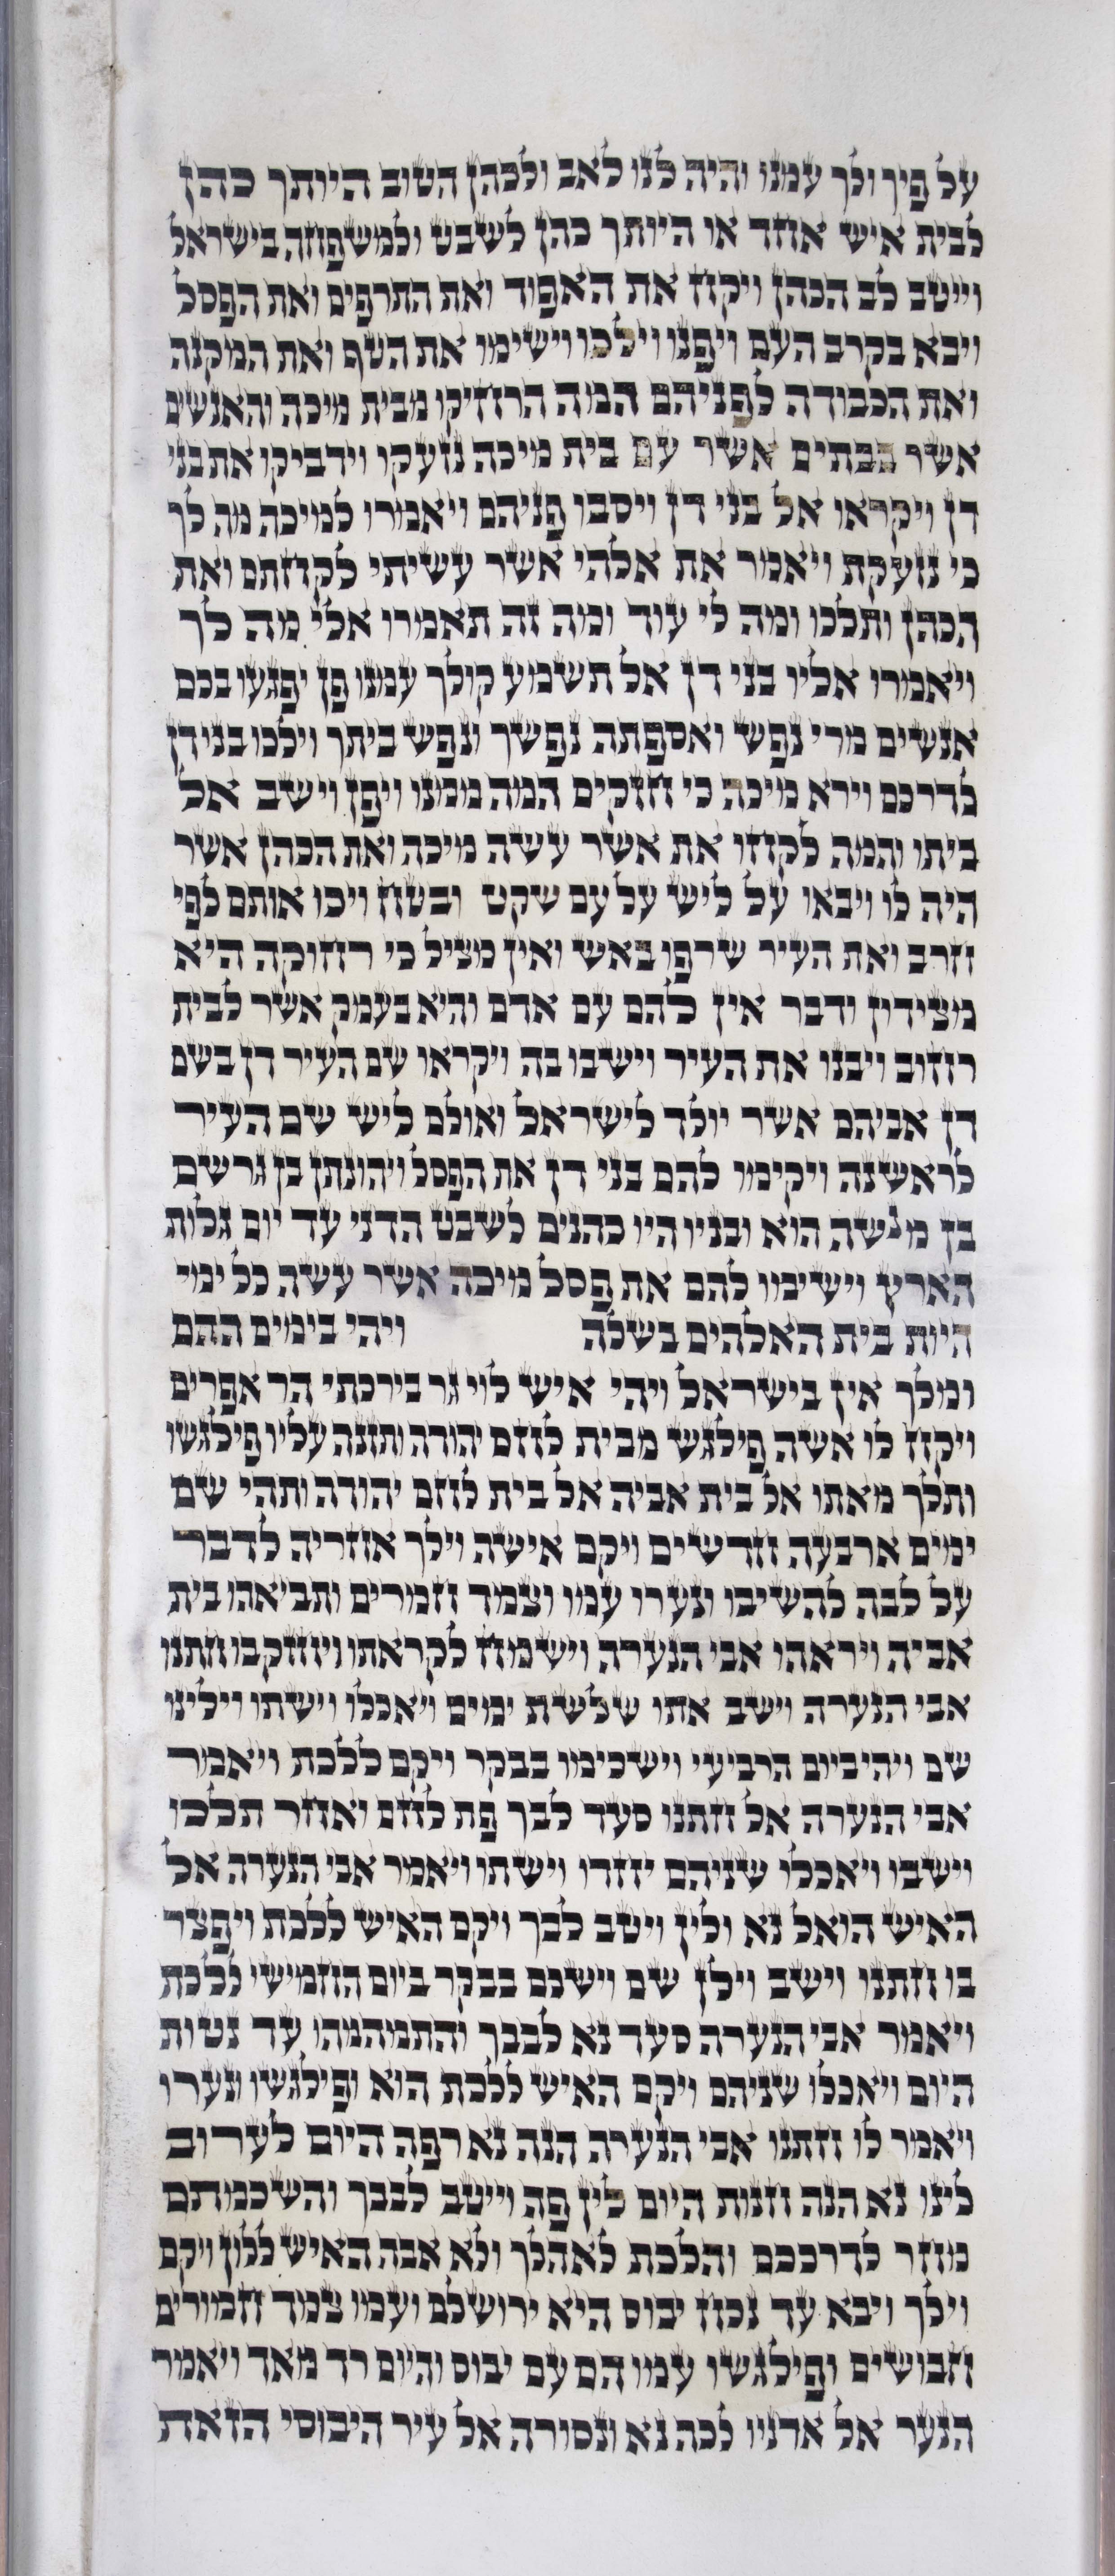 על פיך ולך עמנו והיה לנו לאב ולכהן הטוב היותך כהן
לבית איש אחד או היותך כהן לשבט ולמשפחה בישראל
וייטב לב הכהן ויקח את האפוד ואת התרפים ואת הפסל
ויבא בקרב העם ויפנו וילכו וישימו את הטף ואת המקנה
ואת הכבודה לפניהם המה הרחיקו מבית מיכה והאנשים
אשר בבתים אשר עם בית מיכה נזעקו וידביקו את בני
דן ויקראו אל בני דן ויסבו פניהם ויאמרו למיכה מה לך
כי נזעקת ויאמר את אלהי אשר עשיתי לקחתם ואת
הכהן ותלכו ומה לי עוד ומה זה תאמרו אלי מה לך
ויאמרו אליו בני דן אל תשמע קולך עמנו פן יפגעו בכם
אנשים מרי נפש ואספתה נפשך ונפש ביתך וילכו בני דן
לדרכם וירא מיכה כי חזקים המה ממנו ויפן וישב אל
ביתו והמה לקחו את אשר עשה מיכה ואת הכהן אשר
היה לו ויבאו על ליש על עם שקט ובטח ויכו אותם לפי
חרב ואת העיר שרפו באש ואין מציל כי רחוקה היא
מצידון ודבר אין להם עם אדם והיא בעמק אשר לבית
רחוב ויבנו את העיר וישבו בה ויקראו שם העיר דן בשם
דן אביהם אשר יולד לישראל ואולם ליש שם העיר
לראשנה ויקימו להם בני דן את הפסל ויהונתן בן גרשם
בן מנשה הוא ובניו היו כהנים לשבט הדני עד יום גלות
הארץ וישימו להם את פסל מיכה אשר עשה כל ימי
היות בית האלהים בשלה ויהי בימים ההם
ומלך אין בישראל ויהי איש לוי גר בירכתי הר אפרים
ויקח לו אשה פילגש מבית לחם יהודה ותזנה עליו פילגשו
ותלך מאתו אל בית אביה אל בית לחם יהודה ותהי שם
ימים ארבעה חדשים ויקם אישה וילך אחריה לדבר
על לבה להשיבו ונערו עמו וצמד חמרים ותביאהו בית
אביה ויראהו אבי הנערה וישמח לקראתו ויחזק בו חתנו
אבי הנערה וישב אתו שלשת ימים ויאכלו וישתו וילינו
שם ויהי ביום הרביעי וישכימו בבקר ויקם ללכת ויאמר
אבי הנערה אל חתנו סעד לבך פת לחם ואחר תלכו
וישבו ויאכלו שניהם יחדו וישתו ויאמר אבי הנערה אל
האיש הואל נא ולין ויטב לבך ויקם האיש ללכת ויפצר
בו חתנו וישב וילן שם וישכם בבקר ביום החמישי ללכת
ויאמר אבי הנערה סעד נא לבבך והתמהמהו עד נטות
היום ויאכלו שניהם ויקם האיש ללכת הוא ופילגשו ונערו
ויאמר לו חתנו אבי הנערה הנה נא רפה היום לערוב
לינו נא הנה חנות היום לין פה וייטב לבבך והשכמתם
מחר לדרככם והלכת לאהלך ולא אבה האיש ללון ויקם
וילך ויבא עד נכח יבוס היא ירושלם ועמו צמד חמורים
חבושים ופילגשו עמו הם עם יבוס והיום רד מאד ויאמר
הנער אל אדניו לכה נא ונסורה אל עיר היבוסי הזאת